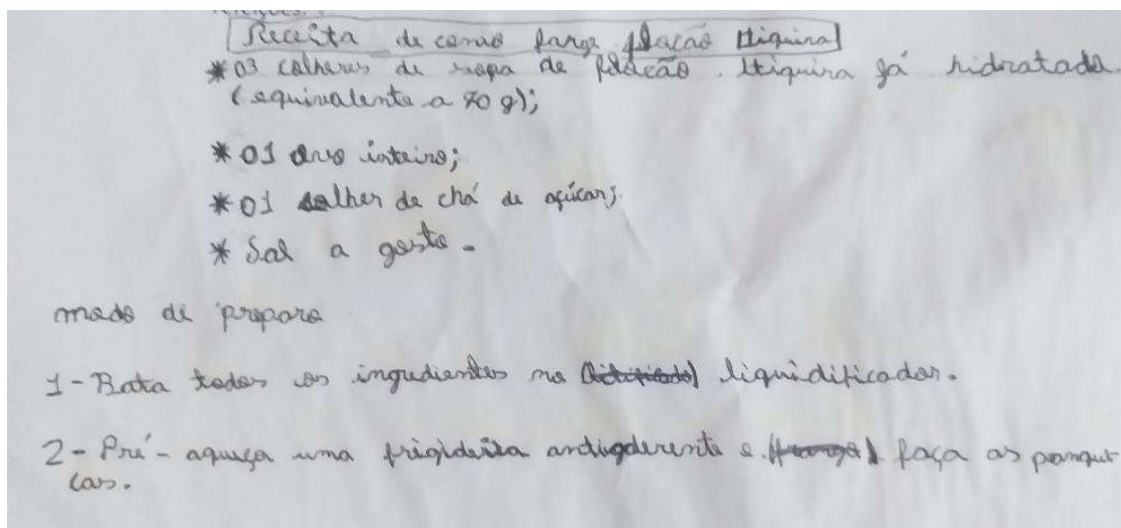 Receita de como farge flocão Itiquira
*03 colheres de sopa de flocão. Itiquira já hidratada
(equivalente a 70 g);
*01 ovo inteiro;
*01 colher de chá de açúcar;
* Sal a gosto -
modo de preparo
1- Bata todos os ingredientes no liquidificador.
2- Pré-aqueça uma frigideira antigderente e faça as panque
cas.